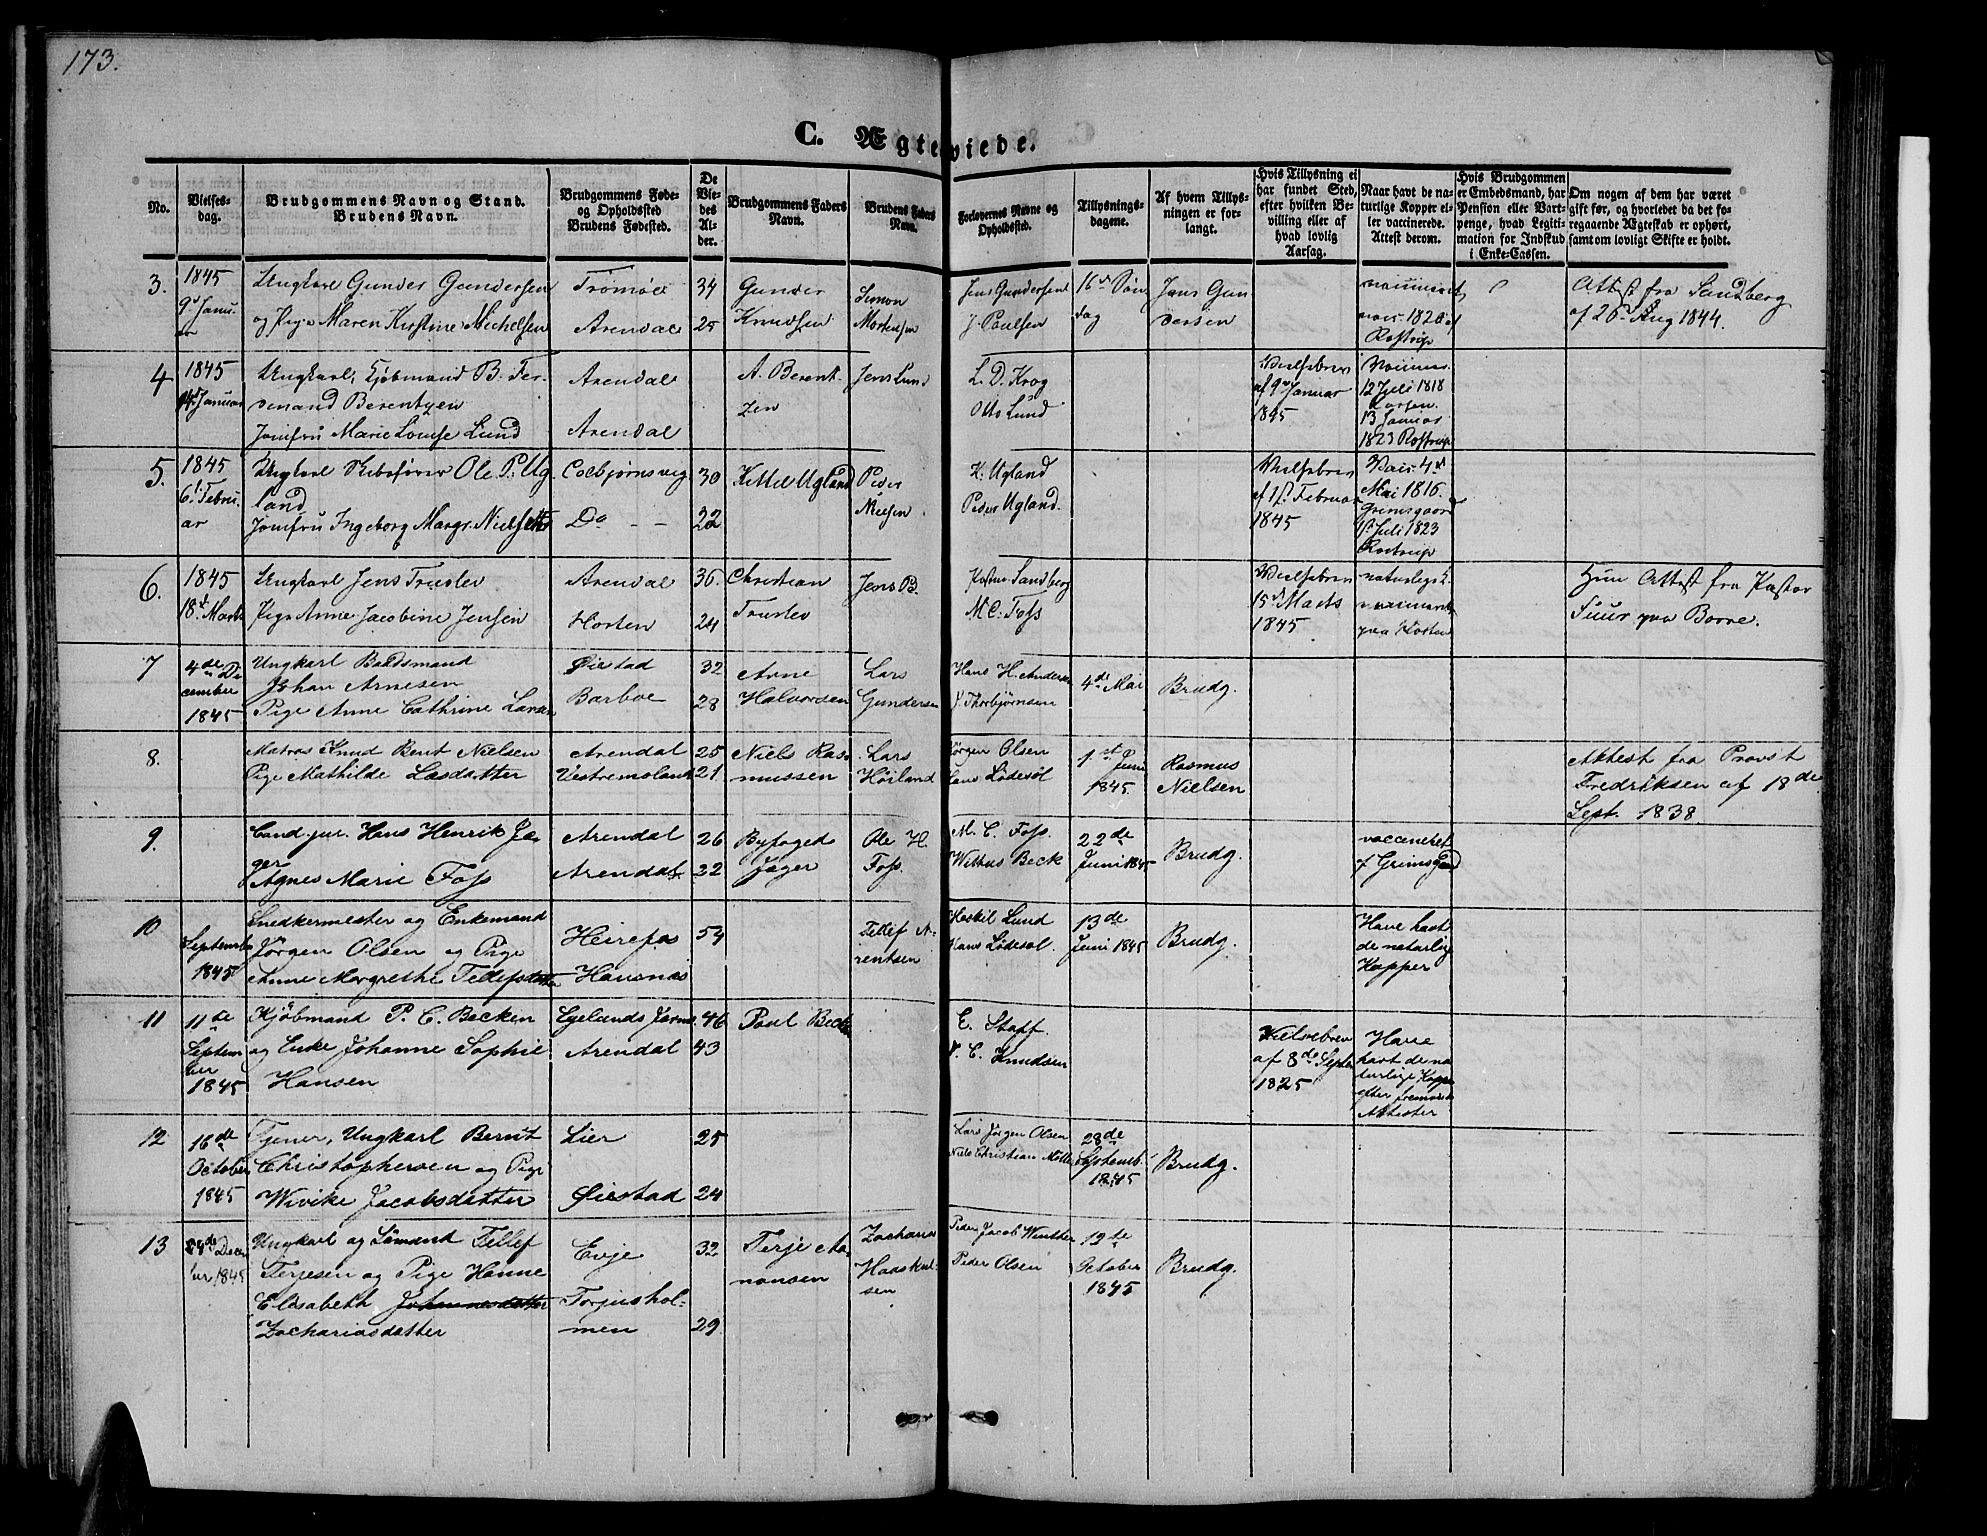 173.
C. Ægteviede.
No.
Vielses-
dag.
Brudgommens Navn og Stand.
Brudens Navn.
Brudgommens Føde-
og Opholdssted
Brudens Fødested.
De
Vie-
des
Al-
der.
Brudgommens Faders
Navn.
Brudens Faders
Navn.
Forlovernes Navne og
Opholdssted.
Tillysnings-
dagene.
Af hvem Tillys-
ningen er for-
langt.
Hvis Tillysning ei
har fundet Sted,
efter hvilken Be-
villing eller af
hvad lovlig
Aarsag.
Naar havt de na-
turlige Kopper el-
ler vaccinerede.
Attest derom.
Hvis Brudgommen
er Embedsmand, har
Pension eller Vart-
penge, hvad Legiti-
mation for Indskud
i Enke-Cassen.
Om nogen af dem har været
gift før, og hvorledet da det fo-
regaaende Ægteskab er ophørt,
samt om lovligt Skifte er holdt.
3.
1845
9d Janu-
ar
Ungkarl Gunder Gundersen
og Pige Maren Kirstine Michelsen
Tromøe
Arendal
34
25
Gunder
Knudsen
Simon
Mortensen
Jens Gundersen
J. Paulsen
16de Søn
dag
Jens Gun
dersen
Rostrup
Attest fra Sandberg
af 26 Aug 1844.
4
1845
14de Januar
Ungkarl, Kjøbmand B. Fer-
denand Berentzen
Jomfru Marie Louise Lund
Arendal
Arendal
A. Berent-
zen
Jens Lund
L. D. Krog
Otto Lund
Vielsebrev
af 9de Januar
1845
12 Juli 1818
Larsen.
13 Januar
1823 Rostrup
5.
1845
6te Febru-
ar
Ungkarl Skibsfører Ole P. Ug-
land
Jomfru Ingeborg Margr. Nielsen
Colbjørnsvig
Do - -
30
22
Kittel Ugland
Peder
Nielsen.
K. Ugland
Peder Ugland.
Vielsebrev
af 1st Februar
1845
Vacc. 4de
Mai 1816.
Grimsgaard
1st Juli 1823
Rostrup
6.
1845
18de Marts
Ungkarl Jens Truslev
Pige Anne Jacobine Jensen
Arendal
Horten
36.
24
Christian
Truslev
Jens B.
Pastor Sandberg
M. C. Foss
Vielsebrev
15de Marts
1845
paa Horten
Hun Attest fra Pastor
Fuur paa Borre.
7
4de De
cember
1845
Ungkarl Baadsmand
Johan Arnesen
Pige Anne Cathrine Larsen
Øiestad
Barboe
32
28
Arne
Halvorsen
Lars
Gundersen
Hans H. Andersen
J. Thorbjørnsen
4de Mai
Brudg.
8.
Matros Knud Bent Nielsen
Pige Mathilde Lasdatter
Arendal
Vestremoland
25
21
Niels Ras-
mussen
Lars
Høiland
Jørgen Olsen
Hans Lødesøl
1st Juni
1845.
Rasmus
Nielsen
Attest fra Provst
Fredriksen af 18de
Sept. 1838.
9.
Cand. jur. Hans Henrik Jæ-
ger
Agnes Marie Foss
Arendal
Arendal
26
32
Byfoged
Jæger
Ole H.
Foss.
M. C. Foss.
Withus Beck
22de
Juni 1845
Brudg.
vaccineret
af Grimsgaard
10
September
1845
Snedkermester og Enkemand
Jørgen Olsen og Pige
Anne Margrethe Tellefsdatter
Heirefos
Hausnæs
54
Tellef A-
rentsen
Heskil Lund
Hans Lødesøl.
13de
Juni 1845
Brudg.
Have havt
de naturlige
Kopper
11
11de
Septem
ber
1845
Kjøbmand P. C. Becken
og Enke Johanne Sophie
Hansen
Egelands Jernv.
Arendal
46
43
Poul Becken
E. Staff.
C. Knudsen
Vielsebrev
af 8de Septbr
1825
Have
havt de na
turlige Kopper
efter fremviste
Attester
12
16de
October
1845
Tjener, Ungkarl Bernt
Christophersen og Pige
Wivike Jacobsdatter
Lier
Øiestad
25
24
Lars Jørgen Olsen
Niels Christian Møller
28de
Septemb.
1845
Brudg.
13
Decem
ber 1845
Ungkarl og Sømand Tellef
Terjesen og Pige Hanne
Elisabeth Johannesdatter
Zachariasdatter
Evje
Torjushol-
men
32
29
Terje Aa-
nonsen
Zacharias
Haaskel-
sen
Peder Jacob Winther
Peder Olsen
12te
October
1845
Brudg.